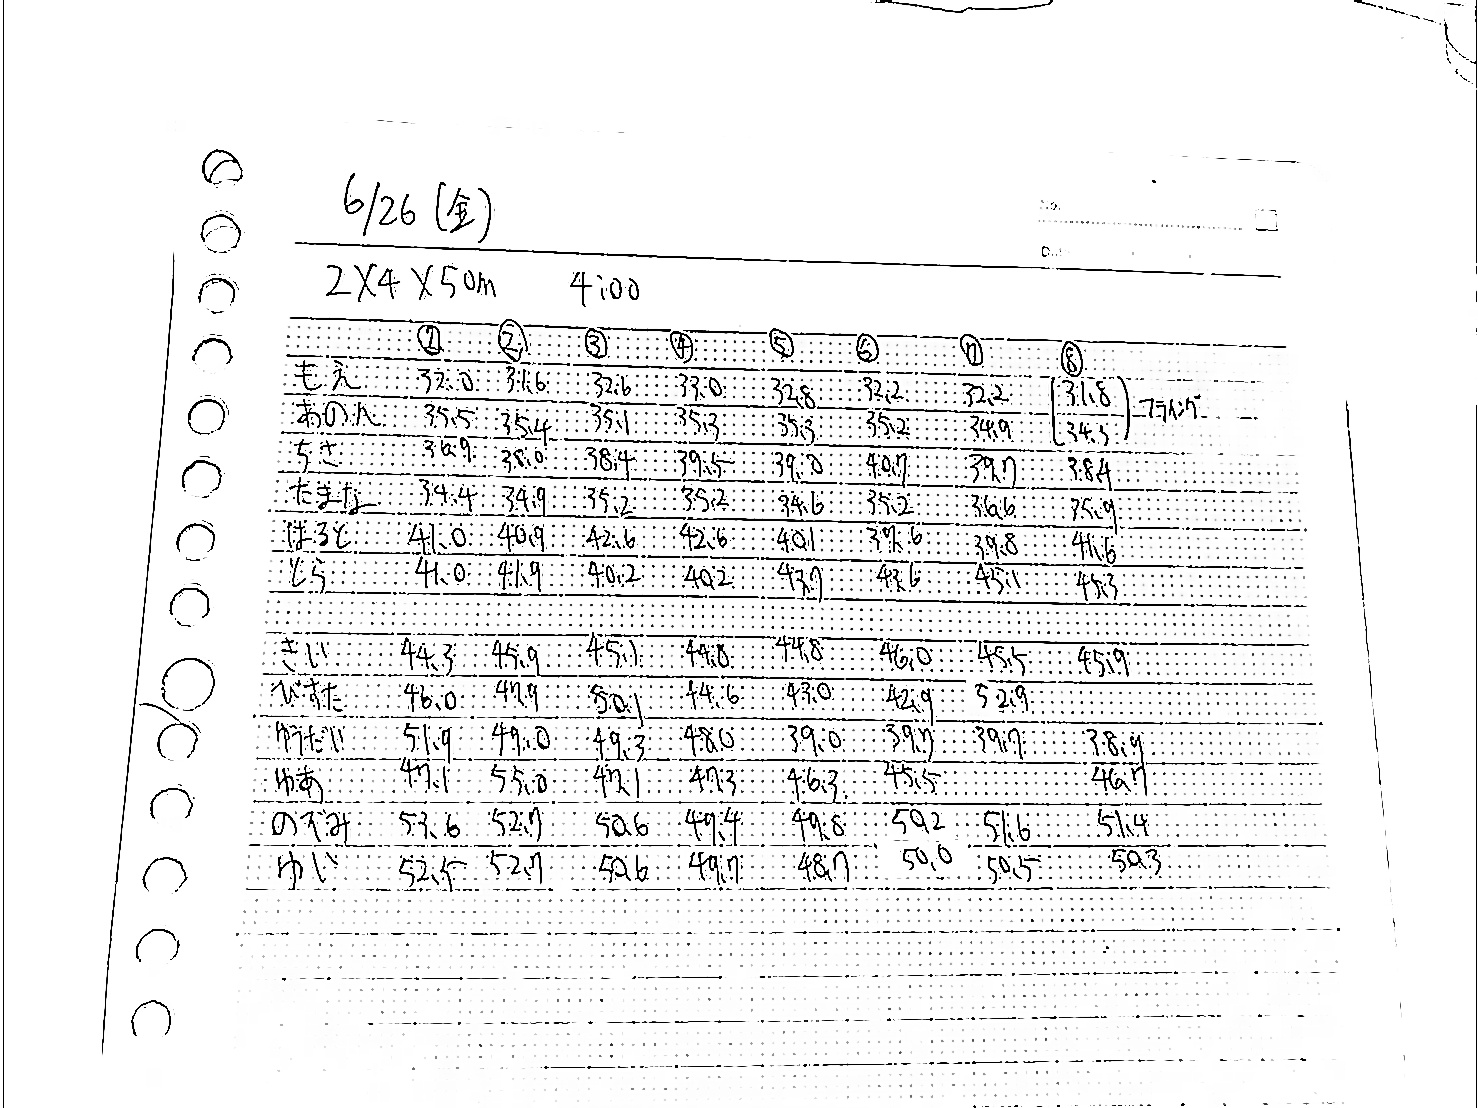 6/26 (金)
No.
Date
2×4×50m 4:00
① ② ③ ④ ⑤ ⑥ ⑦ ⑧
もえ 32.0 31.6 32.6 33.0 32.8 32.2 32.2 (31.8
あのん 35.5 35.4 35.1 35.3 35.3 35.2 34.9 34.5) フライング
ちさ 36.9 38.0 38.4 39.5 39.0 40.7 39.7 38.4
たまな 34.4 34.9 35.2 35.2 34.6 35.2 36.6 35.9
はると 41.0 40.9 42.6 42.6 40.1 39.6 39.8 41.6
とら 41.0 41.9 40.2 40.2 43.7 43.6 45.1 45.3
きい 44.3 45.9 45.1 44.8 44.8 46.0 45.5 45.9
びすた 46.0 47.9 50.1 44.6 43.0 42.9 52.9
ゆうだい 51.9 49.0 49.3 48.0 39.0 39.7 39.7 38.9
ゆあ 47.1 55.0 47.1 47.3 46.3 45.5 46.7
のぞみ 53.6 52.7 50.6 49.4 49.8 50.2 51.6 51.4
ゆじ 52.5 52.7 50.6 49.7 48.7 50.0 50.5 50.3